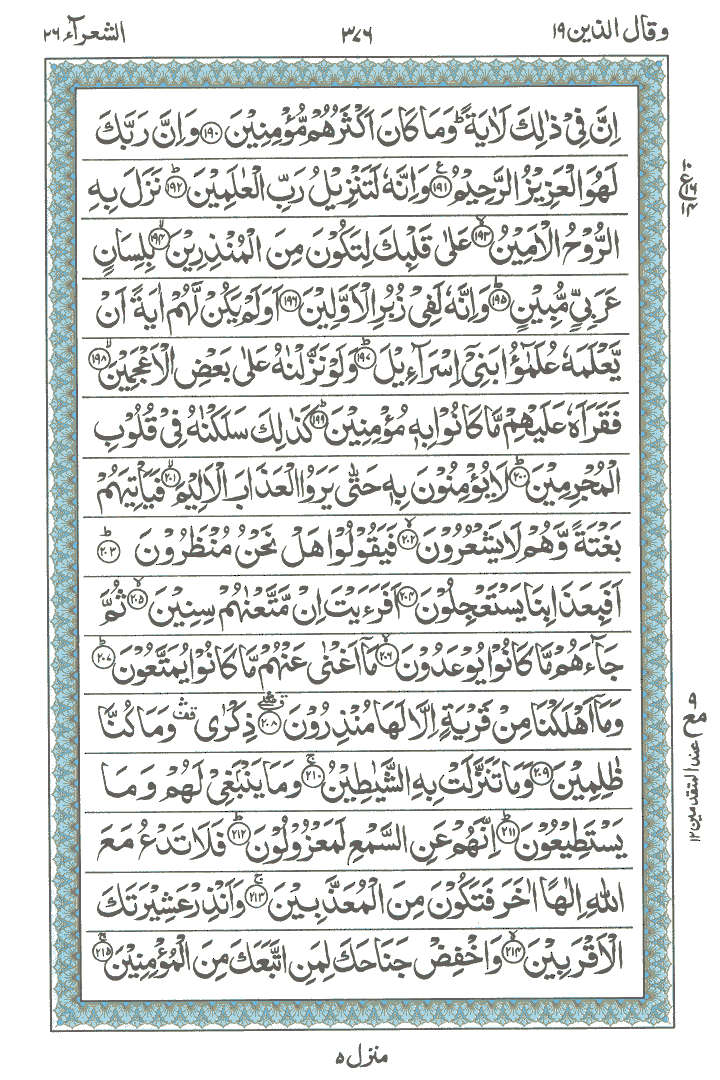 وقال الذين ١٩
٣٧٦
الشعرآء ٢٦
اِنَّ فِىۡ ذٰلِكَ لَاٰيَةً‌ ؕ وَمَا كَانَ اَكۡثَرُهُمۡ مُّؤۡمِنِيۡنَ ﴿۱۹۰﴾ وَاِنَّ رَبَّكَ
لَهُوَ الۡعَزِيۡزُ الرَّحِيۡمُ ﴿۱۹۱﴾ وَاِنَّهٗ لَـتَنۡزِيۡلُ رَبِّ الۡعٰلَمِيۡنَؕ ﴿۱۹۲﴾ نَزَلَ بِهِ
الرُّوۡحُ الۡاَمِيۡنُۙ ﴿۱۹۳﴾ عَلٰى قَلۡبِكَ لِتَكُوۡنَ مِنَ الۡمُنۡذِرِيۡنَۙ ﴿۱۹۴﴾ بِلِسَانٍ
عَرَبِىٍّ مُّبِيۡنٍؕ ﴿۱۹۵﴾ وَاِنَّهٗ لَفِىۡ زُبُرِ الۡاَوَّلِيۡنَ ﴿۱۹۶﴾ اَوَلَمۡ يَكُنۡ لَّهُمۡ اٰيَةً اَنۡ
يَّعۡلَمَهٗ عُلَمٰٓؤُا بَنِىۡۤ اِسۡرَآءِيۡلَؕ ﴿۱۹۷﴾ وَلَوۡ نَزَّلۡنٰهُ عَلٰى بَعۡضِ الۡاَعۡجَمِيۡنَۙ ﴿۱۹۸﴾
فَقَرَاَهٗ عَلَيۡهِمۡ مَّا كَانُوۡا بِهٖ مُؤۡمِنِيۡنَؕ ﴿۱۹۹﴾ كَذٰلِكَ سَلَكۡنٰهُ فِىۡ قُلُوۡبِ
الۡمُجۡرِمِيۡنَؕ ﴿۲۰۰﴾ لَا يُؤۡمِنُوۡنَ بِهٖ حَتّٰى يَرَوُا الۡعَذَابَ الۡاَلِيۡمَۙ ﴿۲۰۱﴾ فَيَاۡتِيَهُمۡ
بَغۡتَةً وَّهُمۡ لَا يَشۡعُرُوۡنَۙ ﴿۲۰۲﴾ فَيَـقُوۡلُوۡا هَلۡ نَحۡنُ مُنۡظَرُوۡنَؕ ﴿۲۰۳﴾
اَفَبِعَذَابِنَا يَسۡتَعۡجِلُوۡنَ ﴿۲۰۴﴾ اَفَرَءَيۡتَ اِنۡ مَّتَّعۡنٰهُمۡ سِنِيۡنَۙ ﴿۲۰۵﴾ ثُمَّ
جَآءَهُمۡ مَّا كَانُوۡا يُوۡعَدُوۡنَۙ ﴿۲۰۶﴾ مَاۤ اَغۡنٰى عَنۡهُمۡ مَّا كَانُوۡا يُمَتَّعُوۡنَؕ ﴿۲۰۷﴾
وَمَاۤ اَهۡلَكۡنَا مِنۡ قَرۡيَةٍ اِلَّا لَهَا مُنۡذِرُوۡنَ ﴿۲۰۸﴾ ذِكۡرٰى ۛ وَمَا كُنَّا
ظٰلِمِيۡنَ ﴿۲۰۹﴾ وَمَا تَنَزَّلَتۡ بِهِ الشَّيٰطِيۡنُۚ ﴿۲۱۰﴾ وَمَا يَنۡۢبَغِىۡ لَهُمۡ وَمَا
يَسۡتَطِيۡعُوۡنَؕ ﴿۲۱۱﴾ اِنَّهُمۡ عَنِ السَّمۡعِ لَمَعۡزُوۡلُوۡنَؕ ﴿۲۱۲﴾ فَلَا تَدۡعُ مَعَ
اللّٰهِ اِلٰهًا اٰخَرَ فَتَكُوۡنَ مِنَ الۡمُعَذَّبِيۡنَۚ ﴿۲۱۳﴾ وَاَنۡذِرۡ عَشِيۡرَتَكَ
الۡاَقۡرَبِيۡنَۙ ﴿۲۱۴﴾ وَاخۡفِضۡ جَنَاحَكَ لِمَنِ اتَّبَعَكَ مِنَ الۡمُؤۡمِنِيۡنَۚ ﴿۲۱۵﴾
مع
عند المتقدمين ١٢
منزل ٥